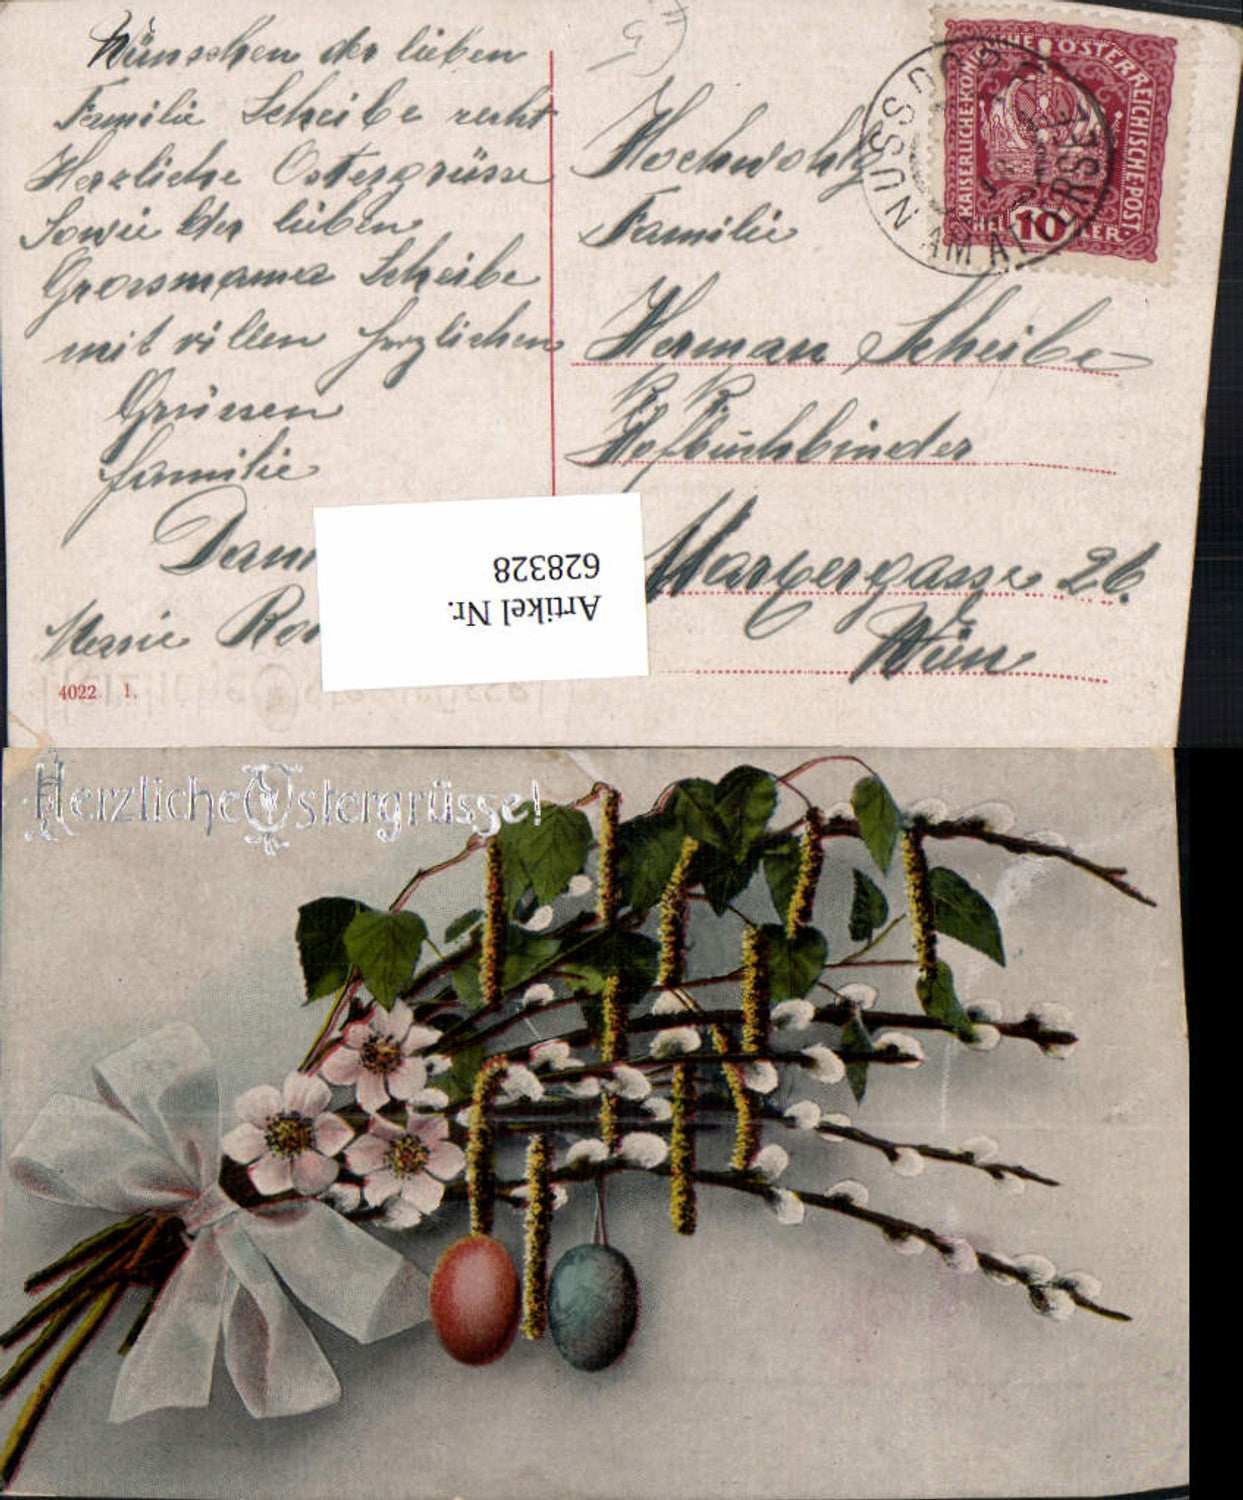 Wünschen der lieben
Familie Scheibe recht
Herzliche Ostergrüsse
Sowie der lieben
Grossmama Scheibe
mit villen herzlichen
Grüssen
familie
Marie
4022 1.
Hochwohlg
Familie
Herman Scheibe
K. K.
Hofbuchbinder
Marxergasse 26.
Wien
KAISERLICHE KÖNIGLICHE ÖSTERREICHISCHE POST
HELLER 10
NUSSDORF AM ATTERSEE
Artikel Nr.
628328
Herzliche Ostergrüsse!